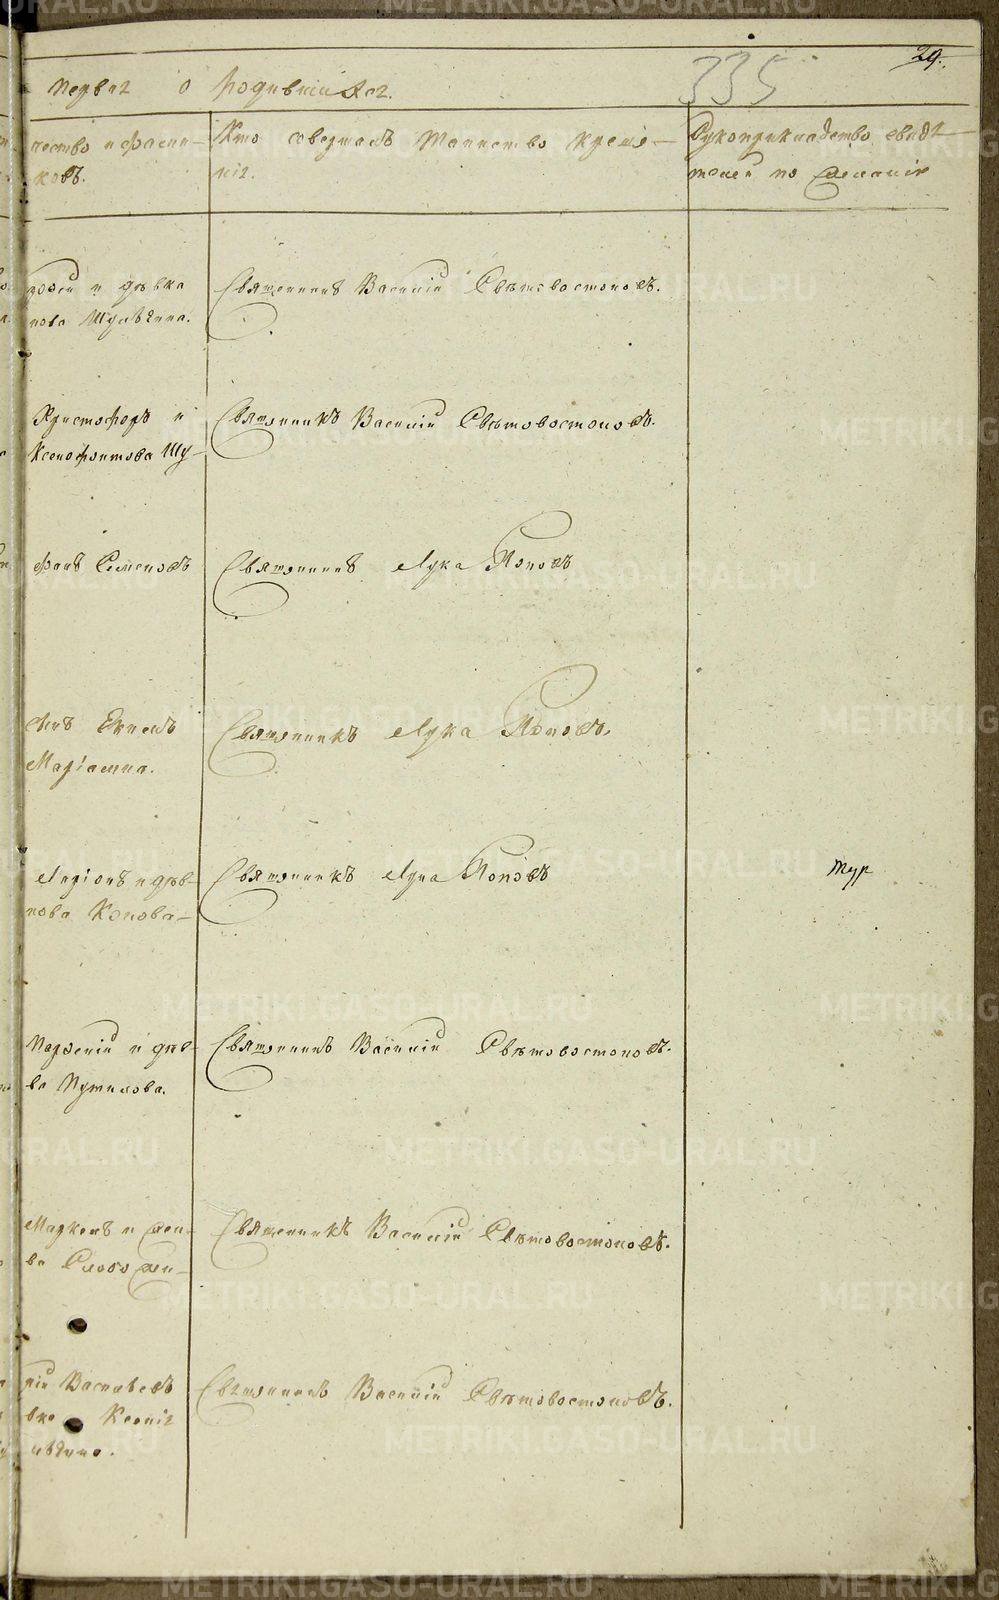 29.
335
первая о родившихся.
чество и фами-
ковъ.
Кто совершалъ Таинство креще-
нія.
Рукоприкладство свидѣ-
телей по желанію
и дѣвка
нова
Священникъ Василій Свѣтовостоковъ.
Христофоръ и
Ксенофонтова Шу-
Священникъ Василій Свѣтовостоковъ.
фанъ Семеновъ
Священникъ Лука Поповъ
Екимъ
Маріамна.
Священникъ Лука Поповъ.
Ларіонъ и дѣв-
нова Конова-
Священникъ Лука Поповъ
тур
Парѳеній и дѣв-
ва Путилова.
Священникъ Василій Свѣтовостоковъ.
Маркелъ и жен-
ва
Священникъ Василій Свѣтовостоковъ.
Васильевъ
вка Ксенія
Священникъ Василій Свѣтовостоковъ.
METRIKI.GASO-URAL.RU